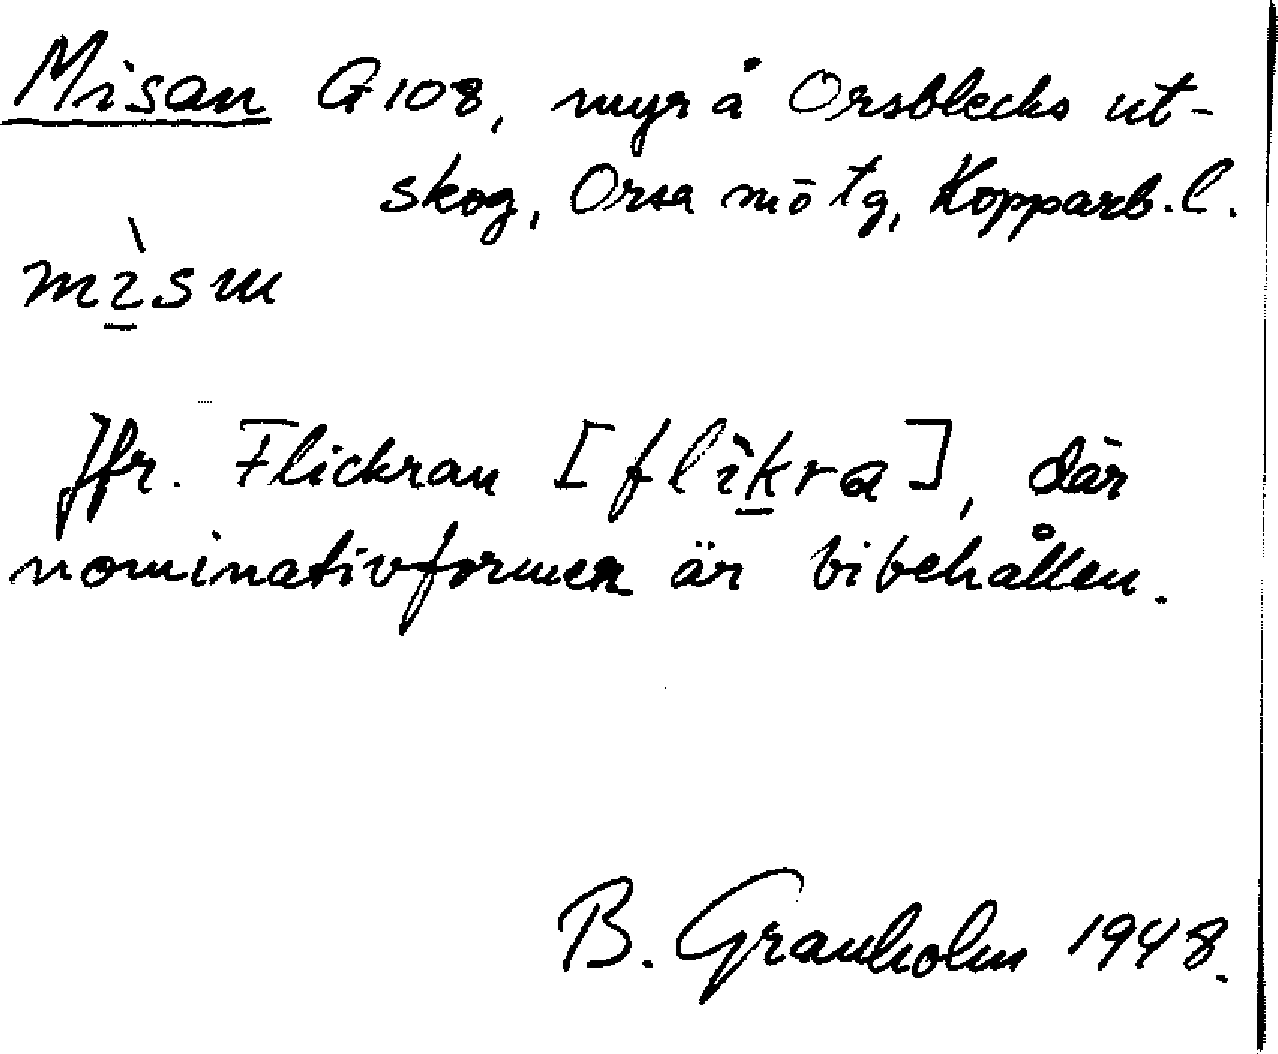 Misan G108, myr å Orsblecks ut-
skog, Orsa mō tg, Kopparb. l.
mìsm
Jfr. Flickran [flìkra], där
nominativformen är bibehållen.
B. Granholm 1948.